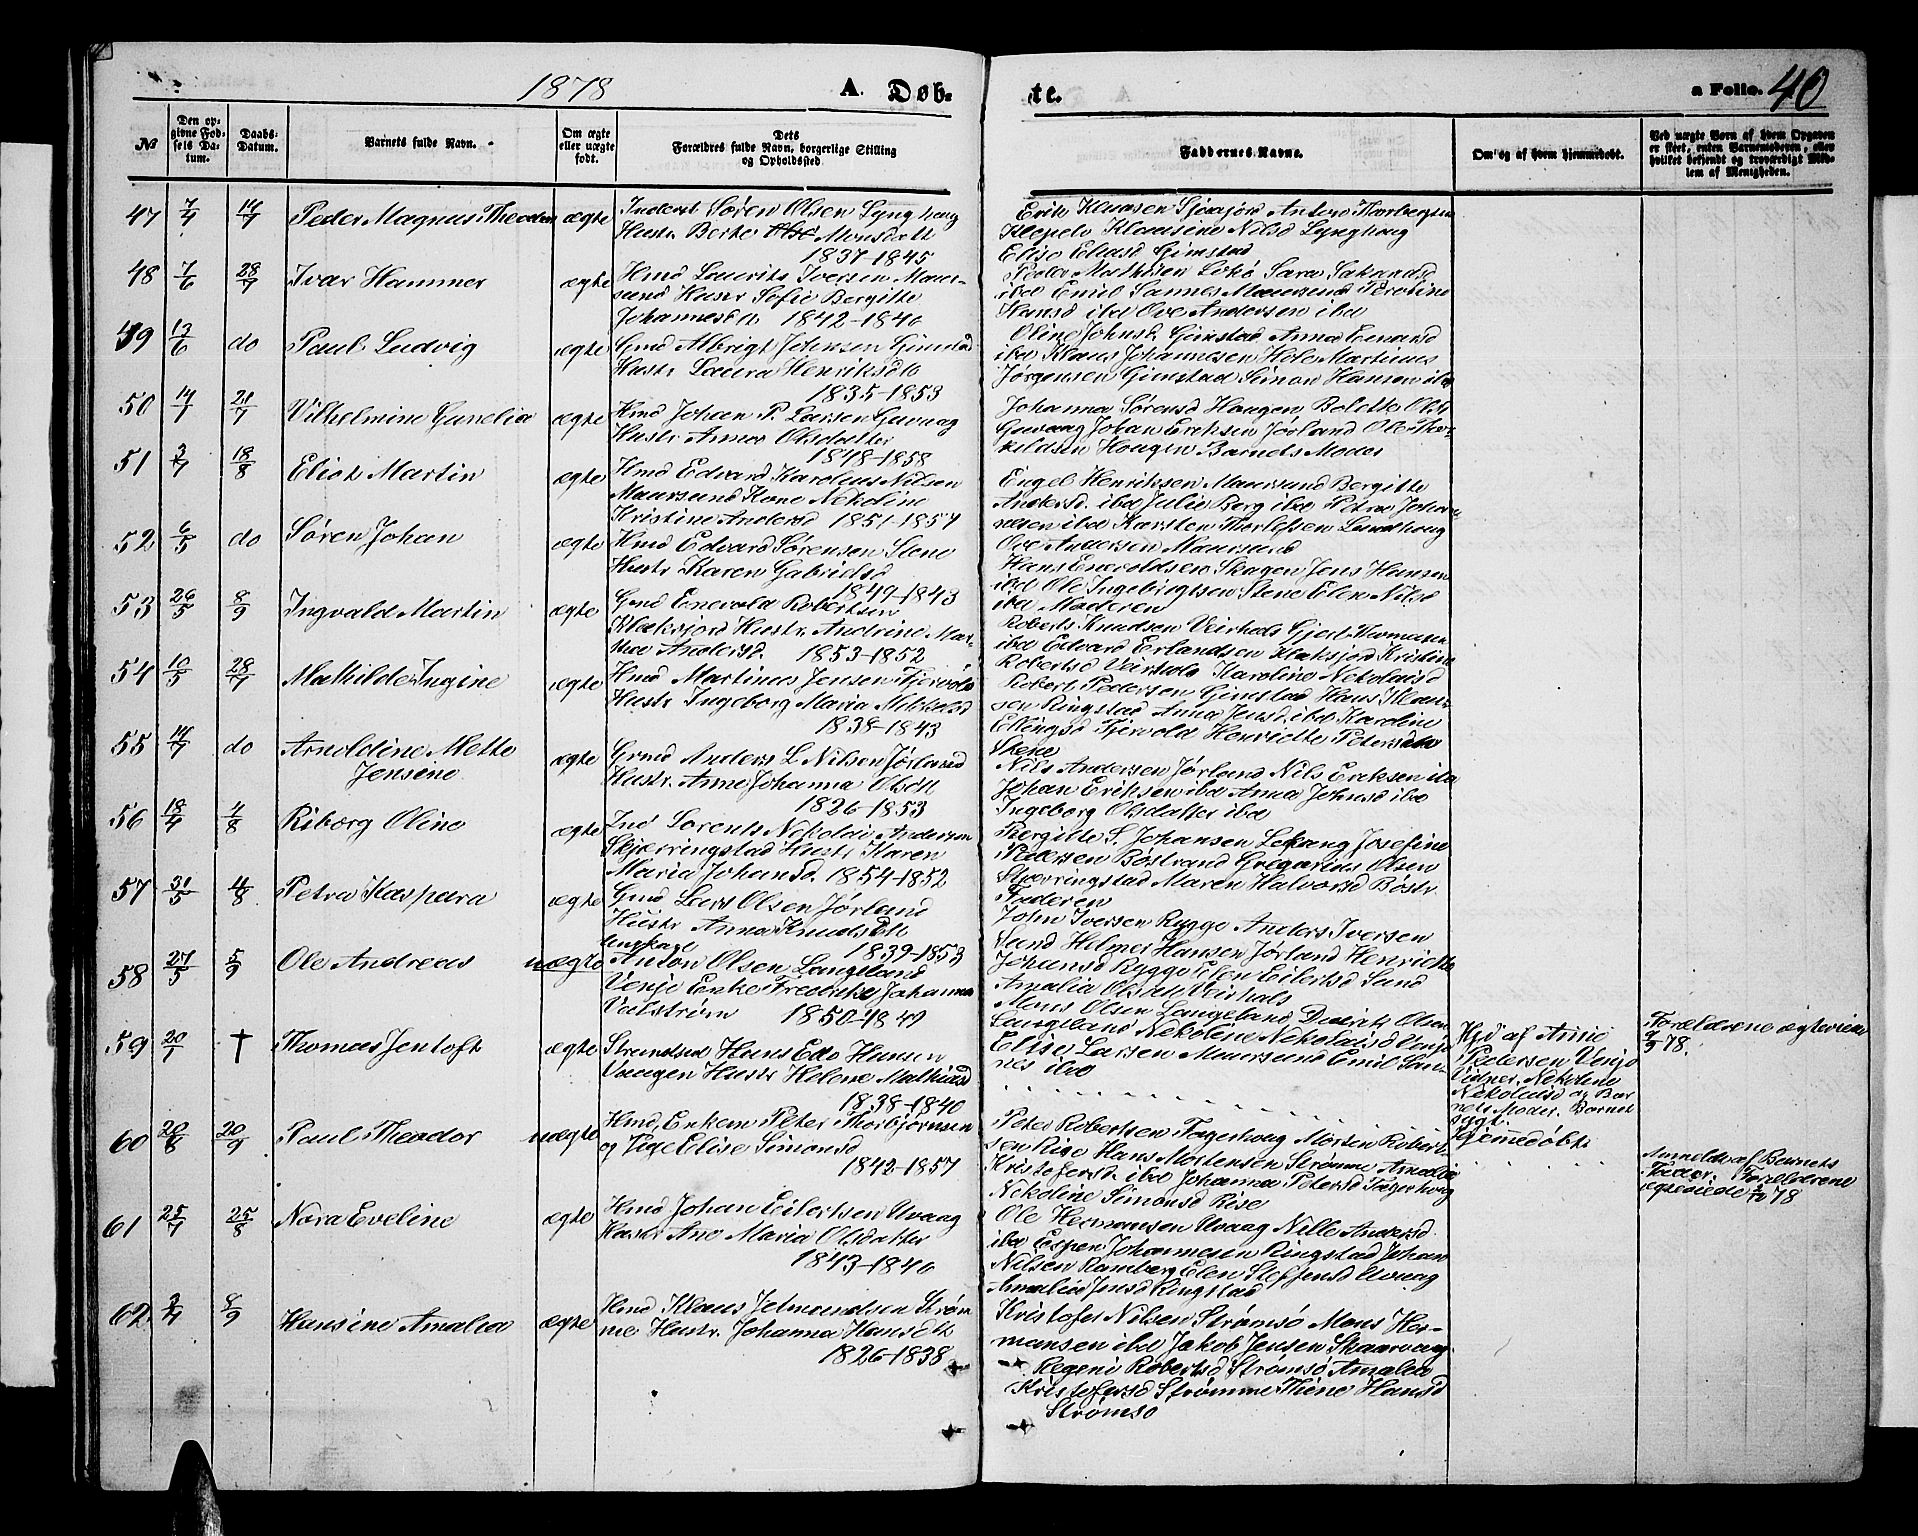 1878
A. Døb-
te.
a Folio. 40
№
Den op-
givne Fød-
sels Da-
tum.
Daabs-
Datum.
Barnets fulde Navn.
Om ægte
eller uægte
født.
Dets
Forældres fulde Navn, borgerlige Stilling
og Opholdssted.
Faddernes Navne.
Om og af hvem hjemmedøbt.
Ved uægte Børn af hvem Opgaven
er skeet, enten Barnemoderen, eller
hvilket bekjendt og troværdigt Med-
lem af Menigheden.
47 7/4 14/7 Peder Magnus Theodor ægte
Inderst Søren Olsen Lynghoug
Hustr Berte Monsdatt
1837-1845
Erik Klausen Anton Thorbergsen
Klausine Nilsd Lynghoug
Elise Eliasd Gimstad
48 7/6 28/7 Ivar Hammer ægte
Hmd Laurits Iversen Maur-
sund Hustr Sofie Bergitte
Johannesd 1842-1846
Peder Mathisen Lokø Sara
ibd Emil Sannes Maursund
Hansd ibd Ove Andersen ibd
49 13/6 do Paul Ludvig ægte
Gmd Albrigt Johnsen Gimstad
Hustr Laura Henriksdtr
1835-1853
Oline Johnsd Gimstad Anna
ibd Klaus Johannesen Hole Martinus
Jørgensen Gimstad Simon Hansen ibd
50 14/1 21/7 Vilhelmine Gunelia ægte
Hmd Johan P. Larsen Guvaag
Hustr Anna Olsdatter
1848-1858
Johanna Sørensd Hougen Bolette Olsd
Guvaag Johan Eriksen Jørland Ole
Hougen Barnets Moder
51 3/7 18/8 Eliot Martin ægte
Hmd Edvard Karolius Nilsen
Maursund Kone Nekoline
Kristine Andersd 1851-1857
Engel Henriksen Maursund Bergitte
Andersd. ibd Julie Berg ibd Petra Johan-
nesen ibd Karsten
Ove Andersen Maursund
52 6/5 do Søren Johan ægte
Hmd Edvard Sørensen Stene
Hustr Karen Gabrielsd
1849-1843
Hans Enevoldsen Skagen Jens Hansen
ibd Ole Ingebrigtsen Stene Elen Nilsd
ibd Moderen
53 26/5 8/9 Ingvald Martin ægte
Gmd Enevold Robertsen
Klaksjord Hustr Andrine Mar-
tha Andersd. 1853-1852
Roberts Knudsen Veirhals Gjert Thomasen
ibd Edvard Erlandsen Klaksjord Kristine
Robertsd Veirhals Karoline Nekolaisd
54 10/5 28/7 Mathilde Ingine ægte
Hmd Martinus Jensen Fjærvold
Hustr Ingeborg Maria Mikkelsd
1838-1843
Robert Pedersen Gimstad Hans Klau-
sen Ringstad Anna Jensd ibd Karoline
Ellingsd Fjervold Henriette Petersdtr
Stene
55 14/7 do Arnoldine Mette
Jensine ægte
Gmd Anders L Nilsen Jørland
Hustr. Anne Johanna Olsdtr
1826-1853
Nils Andersen Jørland Nils Eriksen ibd
Johan Eriksen ibd Anna Johnsd ibd
Ingeborg Olsdatter ibd
56 18/4 4/8 Riborg Oline ægte
Ind Lorents Nekolai Andersen
Skjærringstad Hustr Karen
Maria Johansd. 1854-1852
Bergitte S. Johansen Lekang Josefine
Pedersen Bøstrand Gregarius Olsen
Skjærringstad Maren Halvorsd Bøstr.
Faderen
57 31/5 4/8 Petra Kaspara ægte
Gmd Lars Olsen Jørland
Hustr Anna Knudsdtr
1839-1853
John Iversen Rygge Anders Iversen
Sund Hilmer Hansen Jørland Henriette
Johansd Rygge Elen Eilertsd Sund
Amalia Olsdtr Veirhals
58 27/5 5/9 Ole Andreas uægte
Ungkarl
Anton Olsen Langeland
Venje Enke Fredrikke Johanna
Valstrøm 1850-1849
Mons Olsen Langeland Dedrik Olsen
Langeland Nekoline Nekolaisd Venje
Elise Larsen Maursund Emil San-
nes ibd
Forældrene ægteviede
9/9 78.
59 20/7 † Thomas Jentoft ægte
Strandsid Hans Edv Hansen
Vaagen Hustr Helene Mathiasd
1838-1840
Hjd af Arnt
Pedersen Venje
Vidner. Nekoline
Nekolaisd og Bar
nets Moder. Barnet
sygt.
60 20/8 20/9 Paul Theodor uægte
Hmd, Enkem Peter Thorbjørnsen
og Pige Elise Simonsd
1842-1857
Peter Robertsen Fagerhoug Morten Robert-
sen Rise Hans Mortensen Strømme Amalia
Kristofersd. ibd Johanna Petersd Fagerhoug
Nekoline Simonsd Rise
Hjemmedøbt
Anmeldt af Barnets
Fader. Forældrene
ægteviede 78
61 25/7 25/8 Nora Eveline ægte
Hmd Johan Eilertsen Uvaag
Hustr Ane Maria Olsdatter
1843-1846
Ole Hermansen Uvaag Nille Andersd
ibd Espen Johannesen Ringstad Johan
Nilsen Ramberg Elen Steffensd Uvaag
Amalia Jensd Ringstad
62 3/7 8/9 Hansine Amalia ægte
Hmd Klaus Jetmundsen Strøm-
me Hustr. Johanna Hansdtr
1826-1838
Kristofer Nilsen Strømsø Mons Her-
mansen ibd Jakob Jensen Skaarvaag
Regine Robertsd Strømsø Amalia
Kristofersd Strømme Thine Hansd
Strømsø